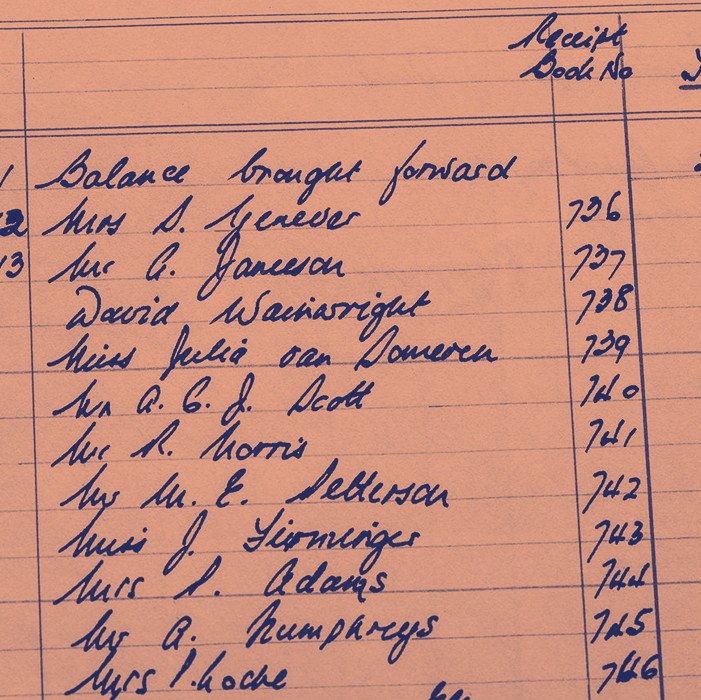 Receipt
Book No
Balance brought forward
Mrs S. Genever 736
13 Mr A. Jameson 737
David Wainwright 738
Miss Julia van Someren 739
Mr A. C. J. Scott 740
Mr R. Norris 741
Mr M. E. Petterson 742
Miss J. Firminger 743
Mrs P. Adams 744
Mr A. Humphreys 745
Mrs P. Roche 746